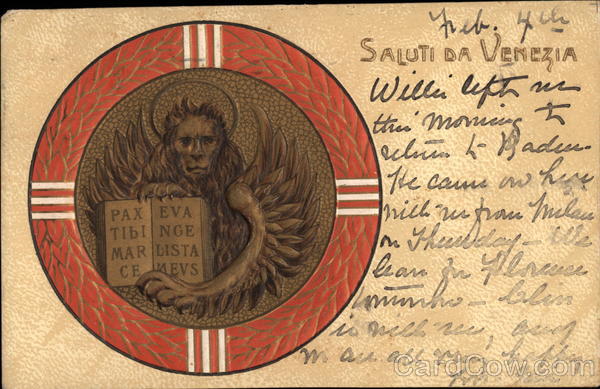 Feb. 4th
SALUTI DA VENEZIA
Willie left us
this morning to
return to Baden.
He came on here
with us from Milan
on Thursday - We
leave for Florence
tomorrow -
is with us,
PAX EVA
TIBI NGE
MAR LISTA
CE MEVS
CardCow.com